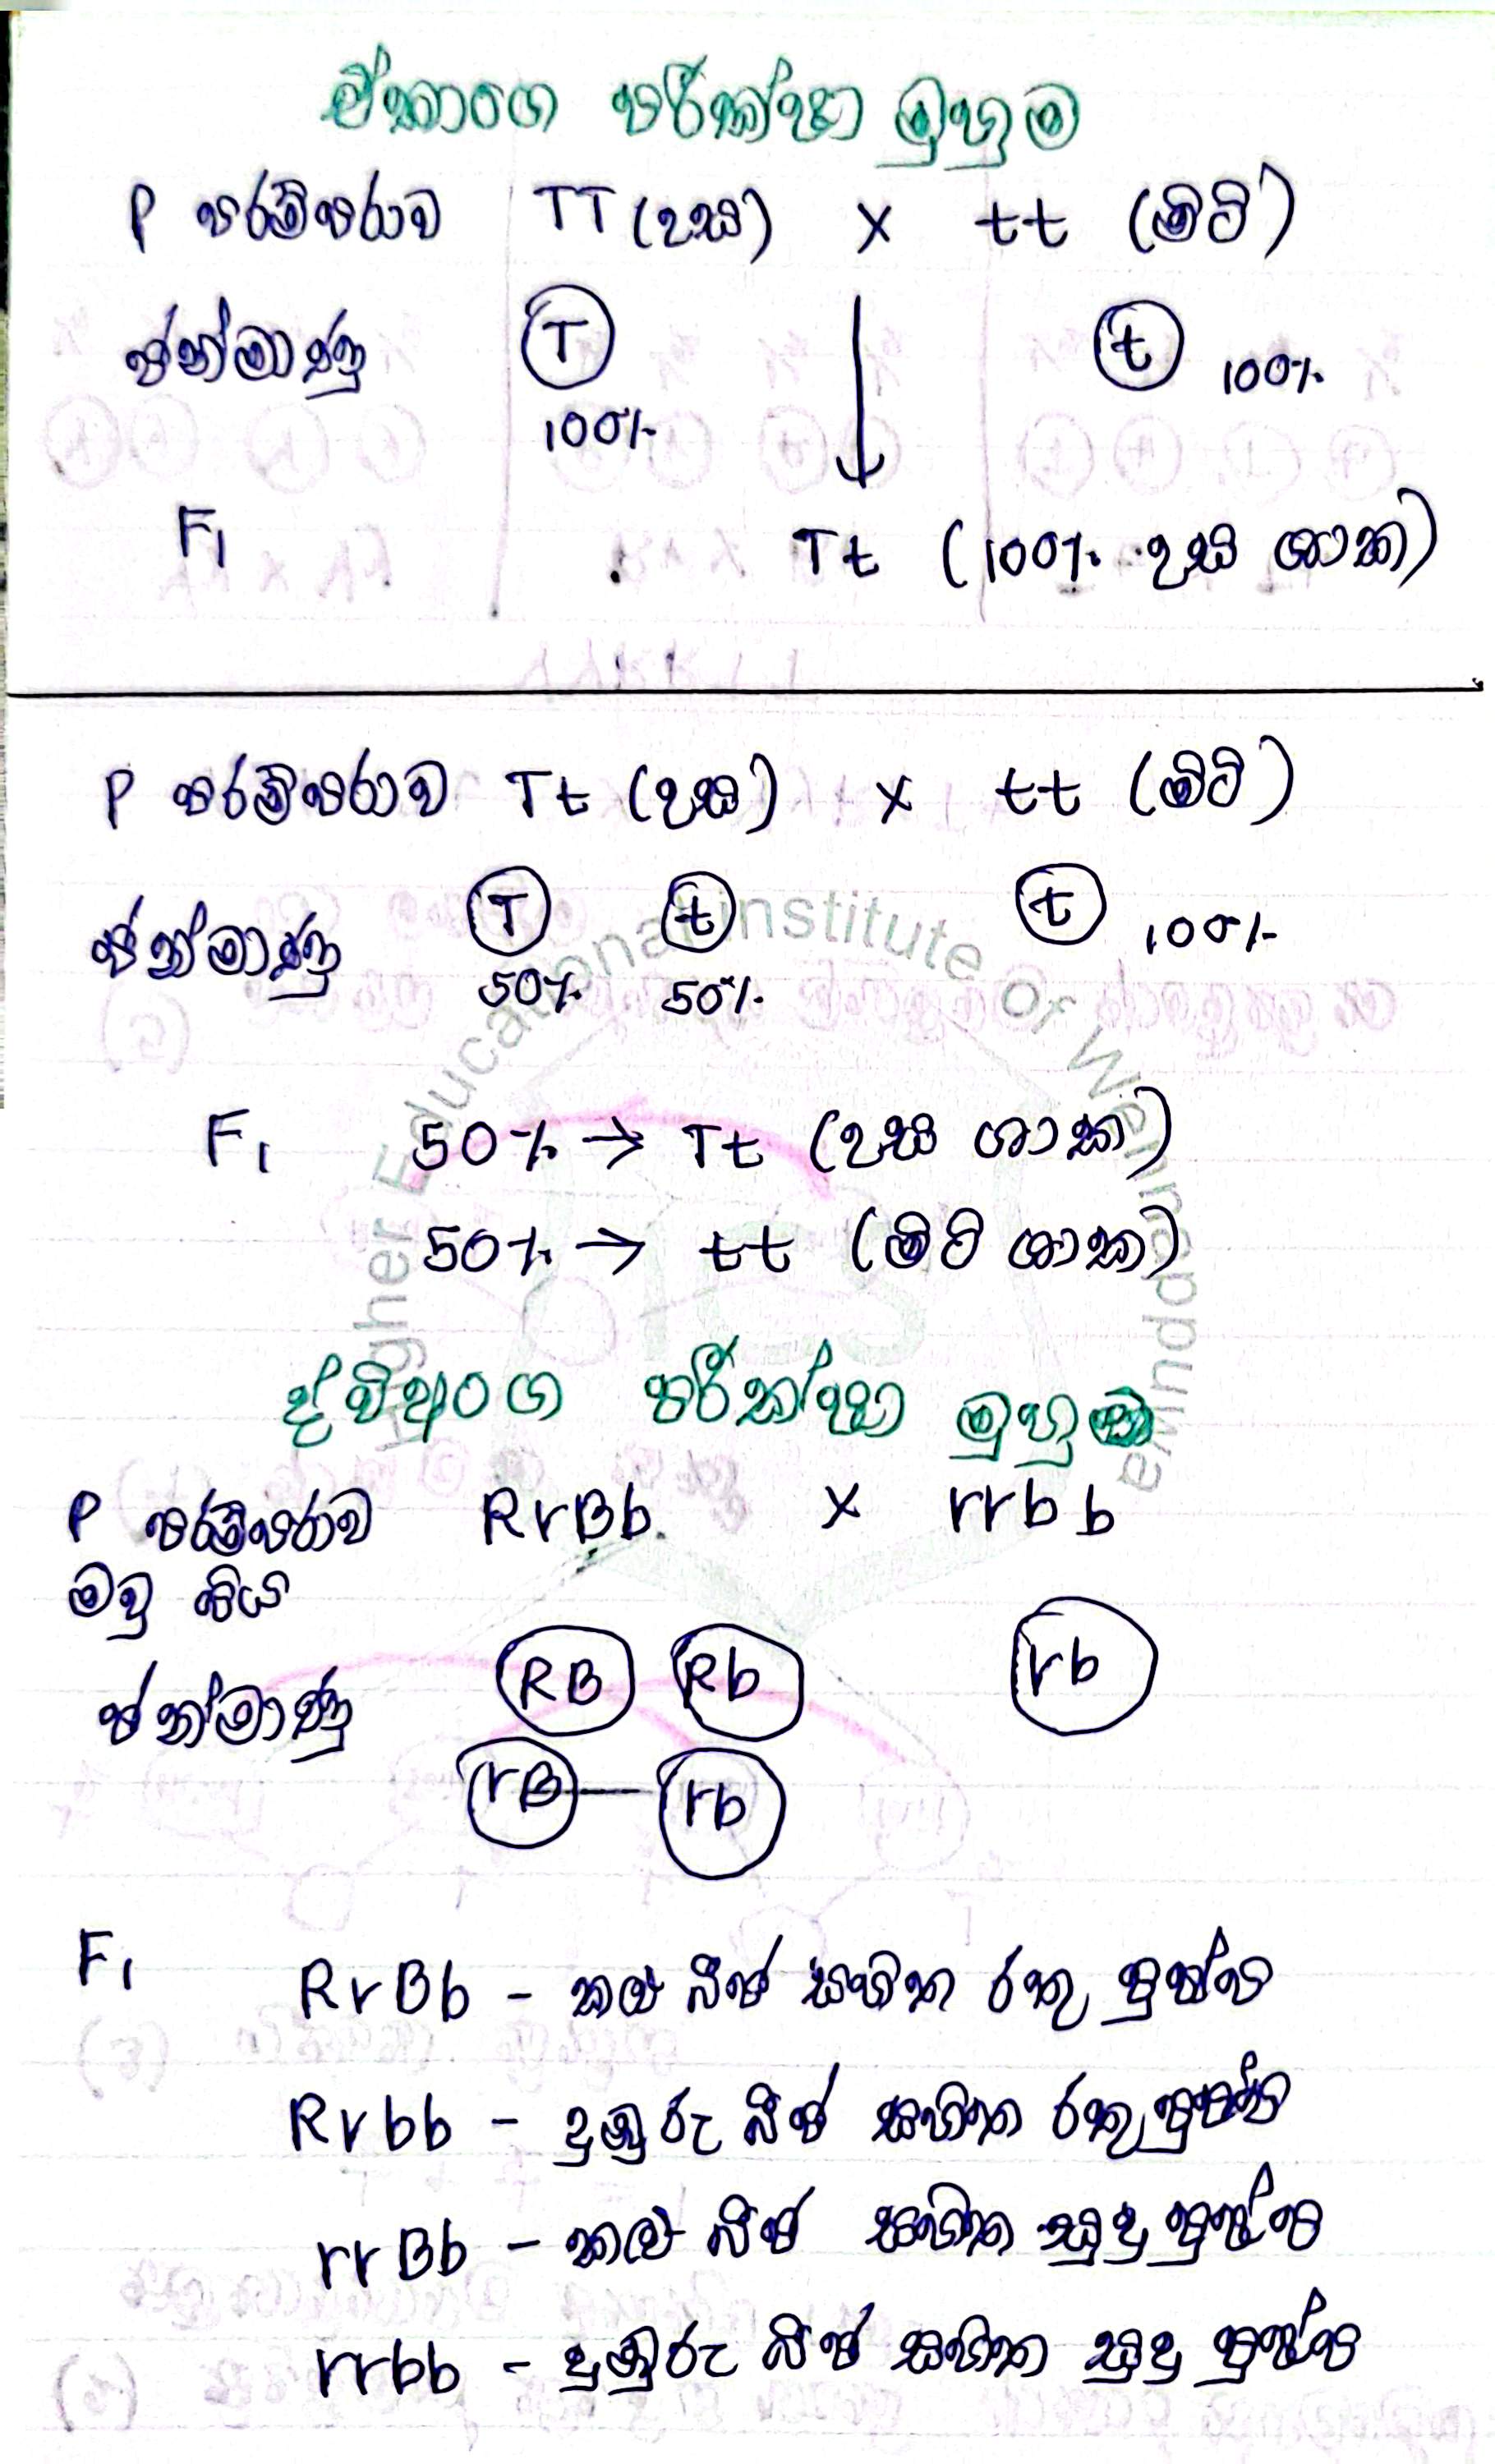 ඒකාංග පරීක්ෂා මුහුම
P පරම්පරාව TT (උස) x tt (මිටි)
ජන්මාණු T t 100%
100%
F1 Tt (100% උස ශාක)
P පරම්පරාව Tt (උස) x tt (මිටි)
ජන්මාණු T t t 100%
50% 50%
F1 50% → Tt (උස ශාක)
50% → tt (මිටි ශාක)
Higher Educational institute Of Welninddama
ද්විඅංග පරීක්ෂා මුහුම
P පරම්පරාව RrBb x rrbb
මවු පිය
ජන්මාණු RB Rb rb
rB rb
F1 RrBb - කළු බීජ සහිත රතු පුෂ්ප
Rrbb - දුඹුරු බීජ සහිත රතු පුෂ්ප
rrBb - කළු බීජ සහිත සුදු පුෂ්ප
rrbb - දුඹුරු බීජ සහිත සුදු පුෂ්ප